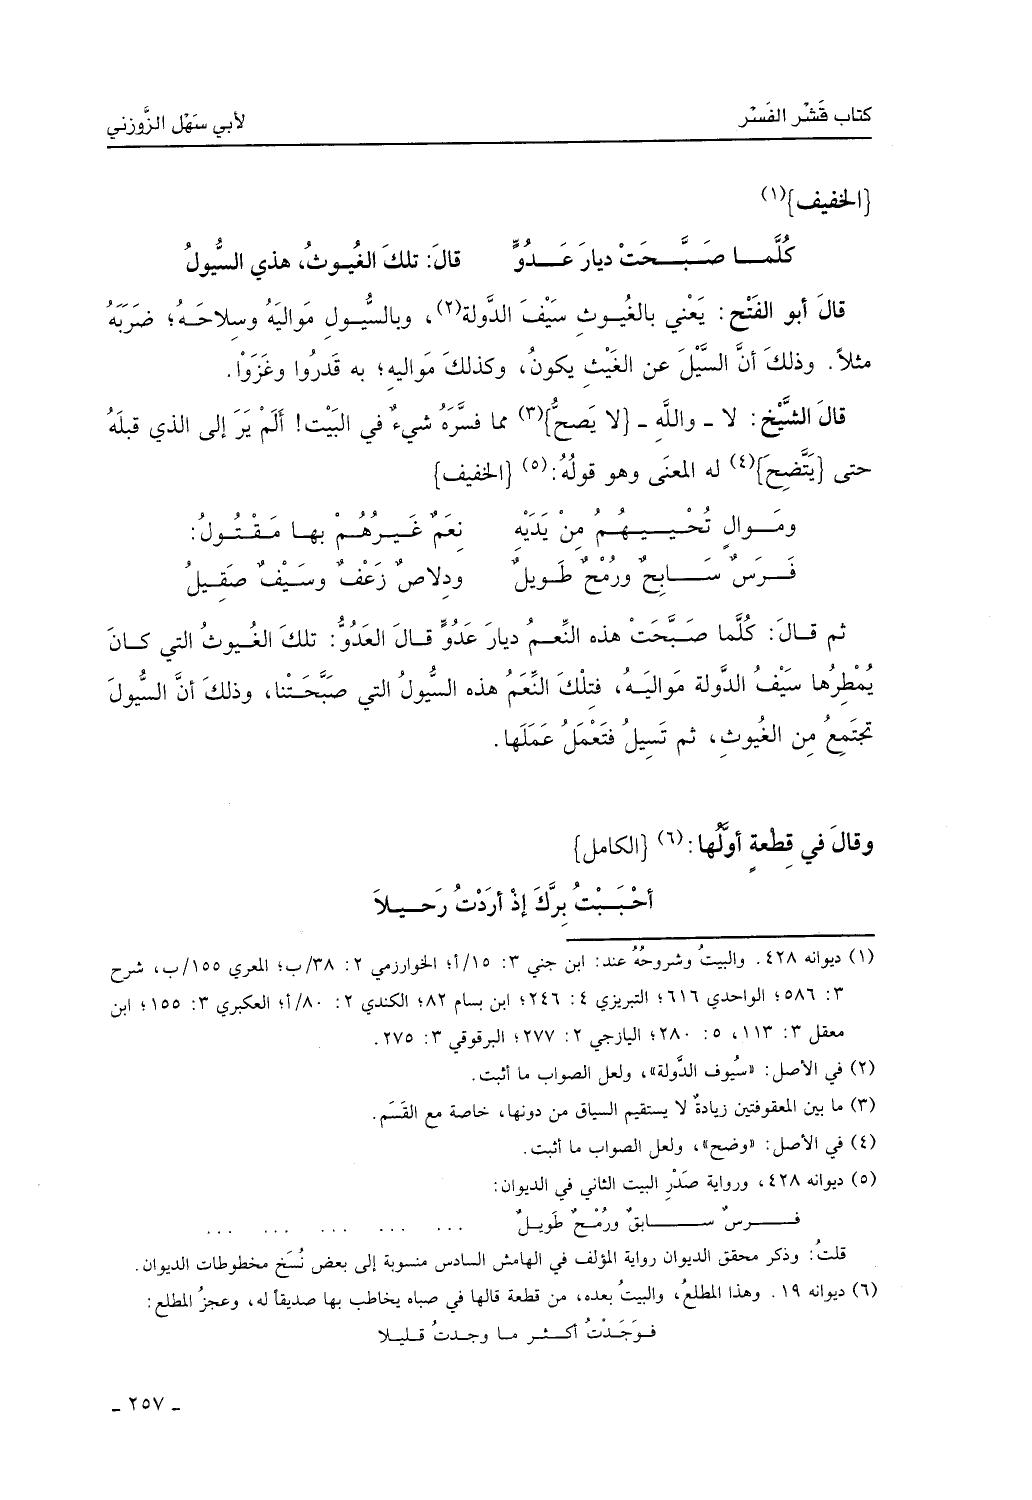 كتاب قَشْر الفَسْر لأبي سَهْل الزَّوزني
{الخفيف}(١)
كُلَّمـــا صَـبَّـــحَتْ ديارَ عَـــدُوٍّ قالَ: تلكَ الغُيـوثُ، هذي السُّيولُ
قالَ أبو الفَتْح: يَعْني بالغُيـوثِ سَيْفَ الدَّولة(٢)، وبالسُّيـولِ مَواليَهُ وسلاحَـهُ؛ ضَرَبَهُ
مثلاً. وذلكَ أنَّ السَّيْلَ عن الغَيْثِ يكونُ، وكذلكَ مَواليهِ؛ به قَدرُوا وغَزَوْا.
قالَ الشَّيْخ: لا ـ واللَّهِ ـ {لا يَصحُّ}(٣) مما فسَّرَهُ شيءٌ في البَيْت! ألَمْ يَرَ إلى الذي قبلَهُ
حتى {يَتَّضِحَ}(٤) له المعنَى وهو قولُهُ:(٥) {الخفيف}
ومَـــوالٍ تُحْـيـــيـهُـمُ مِنْ يَدَيْهِ نِعَمٌ غَـيـرُهُـمْ بهـا مَـقْـتُـولُ:
فَـــرَسٌ ســـــابحٌ ورُمْحٌ طَـويـلٌ ودِلاصٌ زَغْفٌ وسَـيْفٌ صَقيـلُ
ثم قـالَ: كُلَّما صَـبَّحَتْ هذه النِّعـمُ ديارَ عَدُوٍّ قـالَ العَدُوُّ: تلكَ الغُيـوثُ التي كـانَ
يُمْطِرُها سَيْفُ الدَّولة مَواليَـهُ، فتلْكَ النِّعَمُ هذه السُّيولُ التي صَبَّحَـتْنا، وذلكَ أنَّ السُّيولَ
تجتَمِعُ مِن الغُيوثِ، ثم تَسِيلُ فتَعْمَلُ عَمَلَها.
وقالَ في قِطْعةٍ أوَّلُها:(٦) {الكامل}
أحْـبَـبْـتُ بِرَّكَ إذْ أرَدْتُ رَحـيـلاَ
(١) ديوانه ٤٢٨. والبيتُ وشروحُهُ عند: ابن جني ٣: ١٥/أ؛ الخوارزمي ٢: ٣٨/ب؛ المعري ١٥٥/ب، شرح
٣: ٥٨٦؛ الواحدي ٦١٦؛ التبريزي ٤: ٢٤٦؛ ابن بسام ٨٢؛ الكندي ٢: ٨٠/أ؛ العكبري ٣: ١٥٥؛ ابن
معقل ٣: ١١٣، ٥: ٢٨٠؛ اليازجي ٢: ٢٧٧؛ البرقوقي ٣: ٢٧٥.
(٢) في الأصل: «سُيوف الدَّولة»، ولعل الصواب ما أثبت.
(٣) ما بين المعقوفتين زيادةٌ لا يستقيم السياق من دونها، خاصة مع القَسَم.
(٤) في الأصل: «وضح»، ولعل الصواب ما أثبت.
(٥) ديوانه ٤٢٨، ورواية صَدْرِ البيت الثاني في الديوان:
فــــرسٌ ســـــــابقٌ ورُمْـحٌ طَويـلٌ ... ... ... ... ...
قلتُ: وذكر محقق الديوان رواية المؤلف في الهامش السادس منسوبة إلى بعض نُسَخ مخطوطات الديوان.
(٦) ديوانه ١٩. وهذا المطلعُ، والبيتُ بعده، من قطعة قالها في صباه يخاطب بها صديقاً له، وعجزُ المطلع:
فـوَجَـدْتُ أكـــثـر مـا وجـدتُ قـليـلا
ـ ٢٥٧ ـ